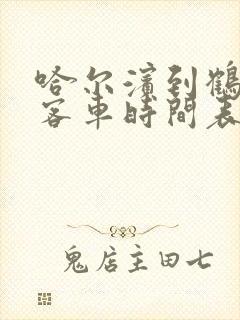 哈尔濱到鶴
客車時間表
鬼店主田七